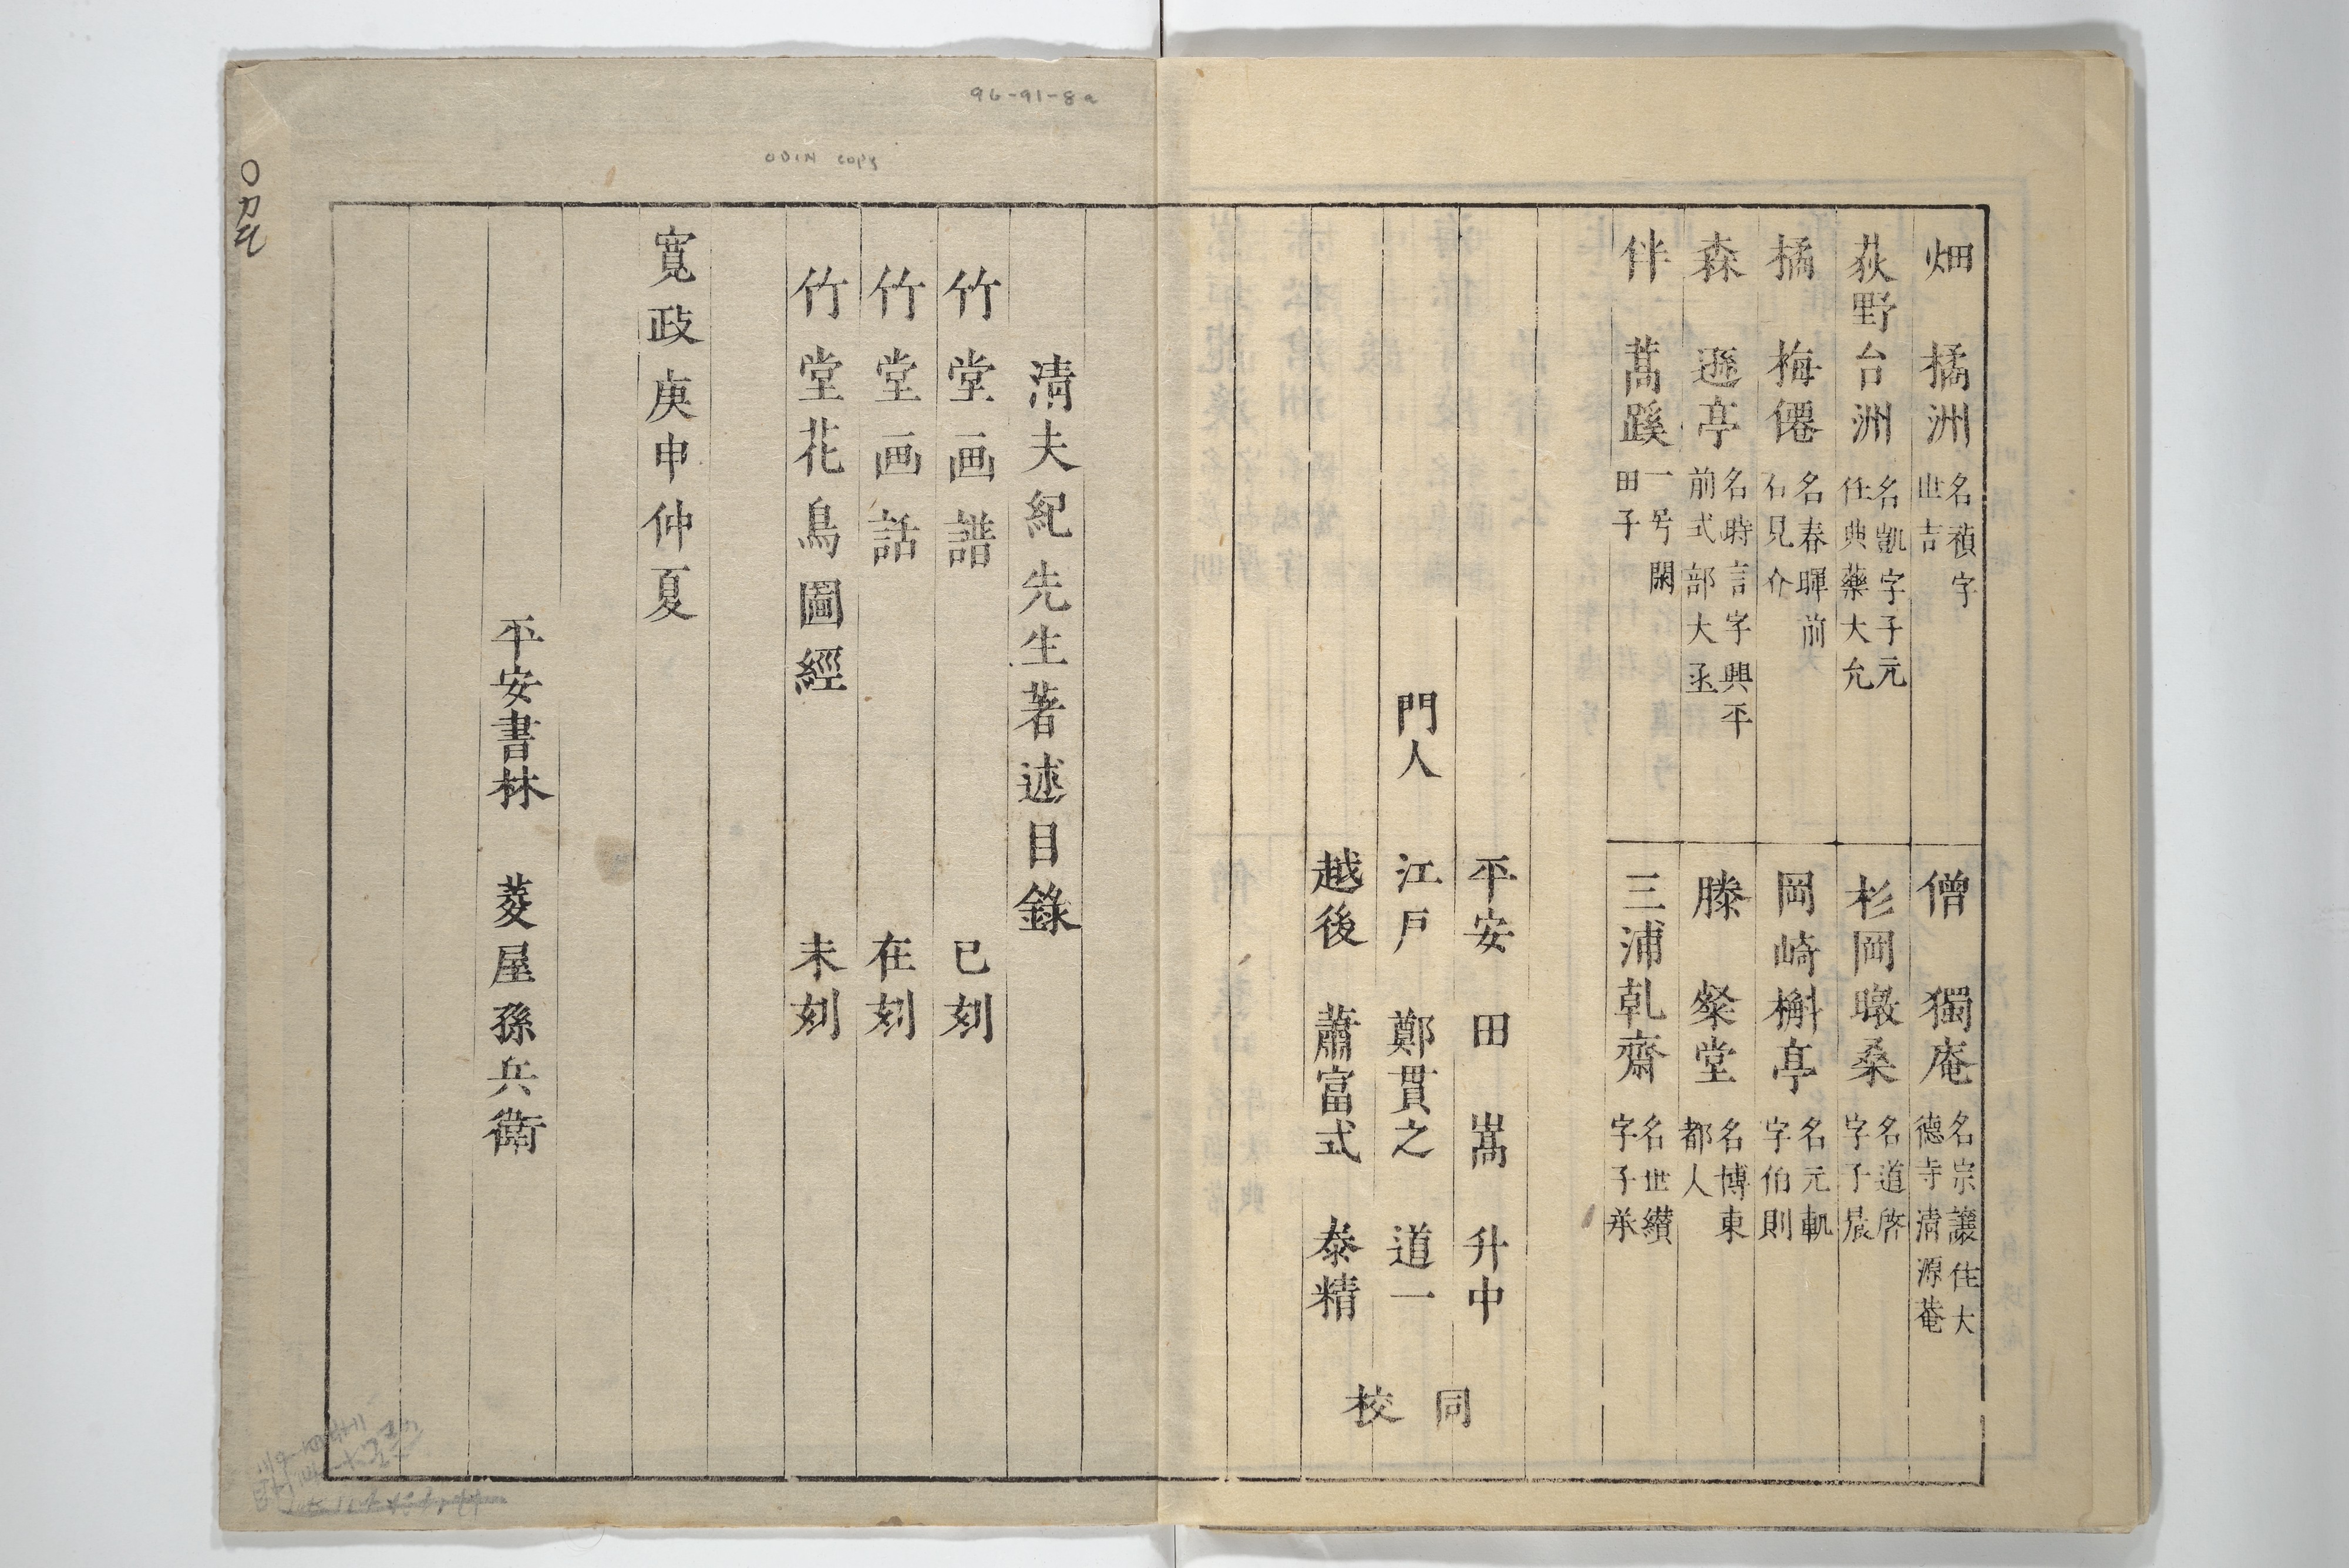 畑　橘洲 名禎字世吉
荻野台洲 名凱字子元任典藥大允
橘　梅僊 名春暉前石見介
森　遜亭 名時言字興平前式部大丞
伴　蒿蹊 一号閑田子
僧　獨庵 名宗讓住大德寺清源菴
杉岡暾桑 名道啓字子晨
岡崎槲亭 名元軌字伯則
滕　粲堂 名博東都人
三浦乾齋 名世纉字子承
平安　田　嵩　升中
門人　江戸　鄭貫之　道一
越後　蕭富式　泰精
同校
清夫紀先生著述目錄
竹堂画譜　已刻
竹堂画話　在刻
竹堂花鳥圖經　未刻
寛政庚申仲夏
平安書林　菱屋孫兵衛
96-91-8a
ODIN copy